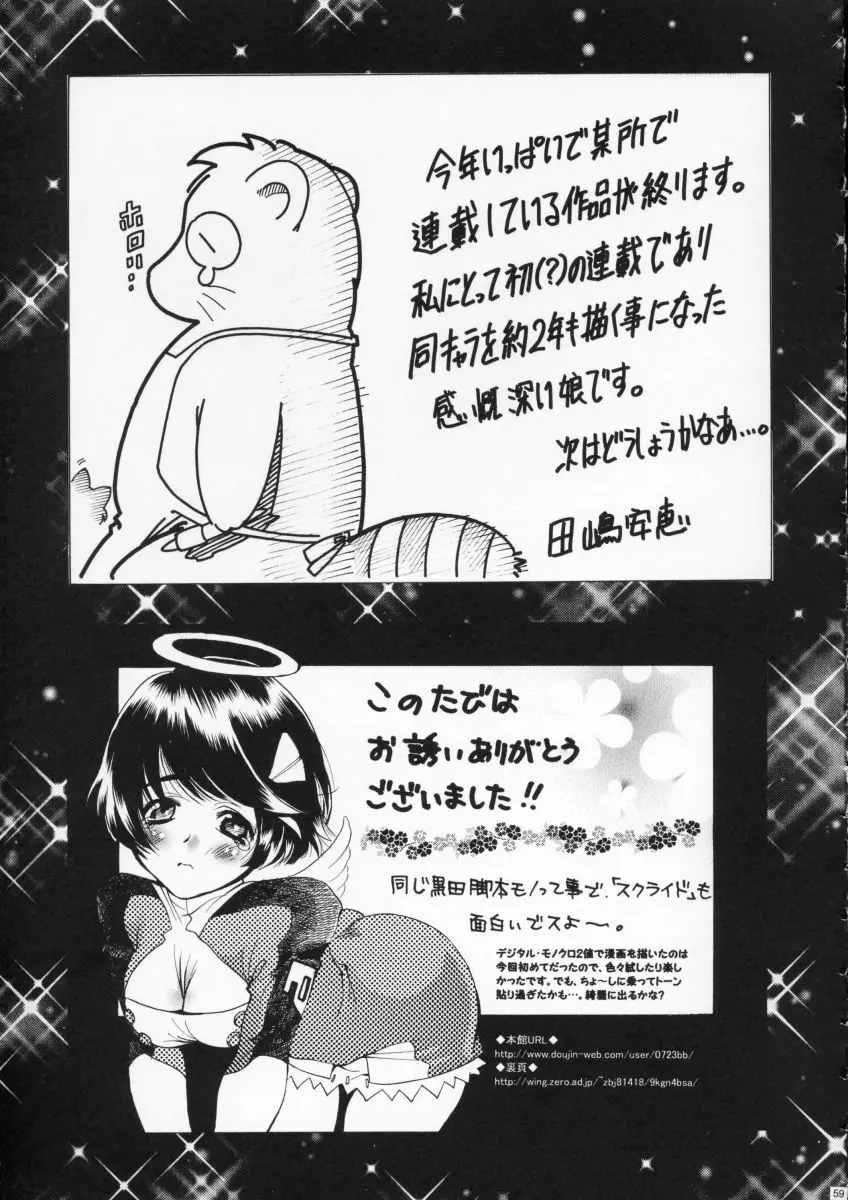 今年いっぱいで某所で
連載している作品が終ります。
私にとって初(?)の連載であり
同キャラを約2年も描く事になった
感慨深い娘です。
次はどうしようかなあ…。
田嶋安恵
ホロリ…
このたびは
お誘いありがとう
ございました!!
同じ黒田脚本モノって事で、「スクライド」も
面白いでスよ～。
デジタル・モノクロ2値で漫画を描いたのは
今回初めてだったので、色々試したり楽し
かったです。でも、ちょ～しに乗ってトーン
貼り過ぎたかも…。綺麗に出るかな?
◆本館URL◆
http://www.doujin-web.com/user/0723bb/
◆裏頁◆
http://wing.zero.ad.jp/~zbj81418/9kgn4bsa/
59